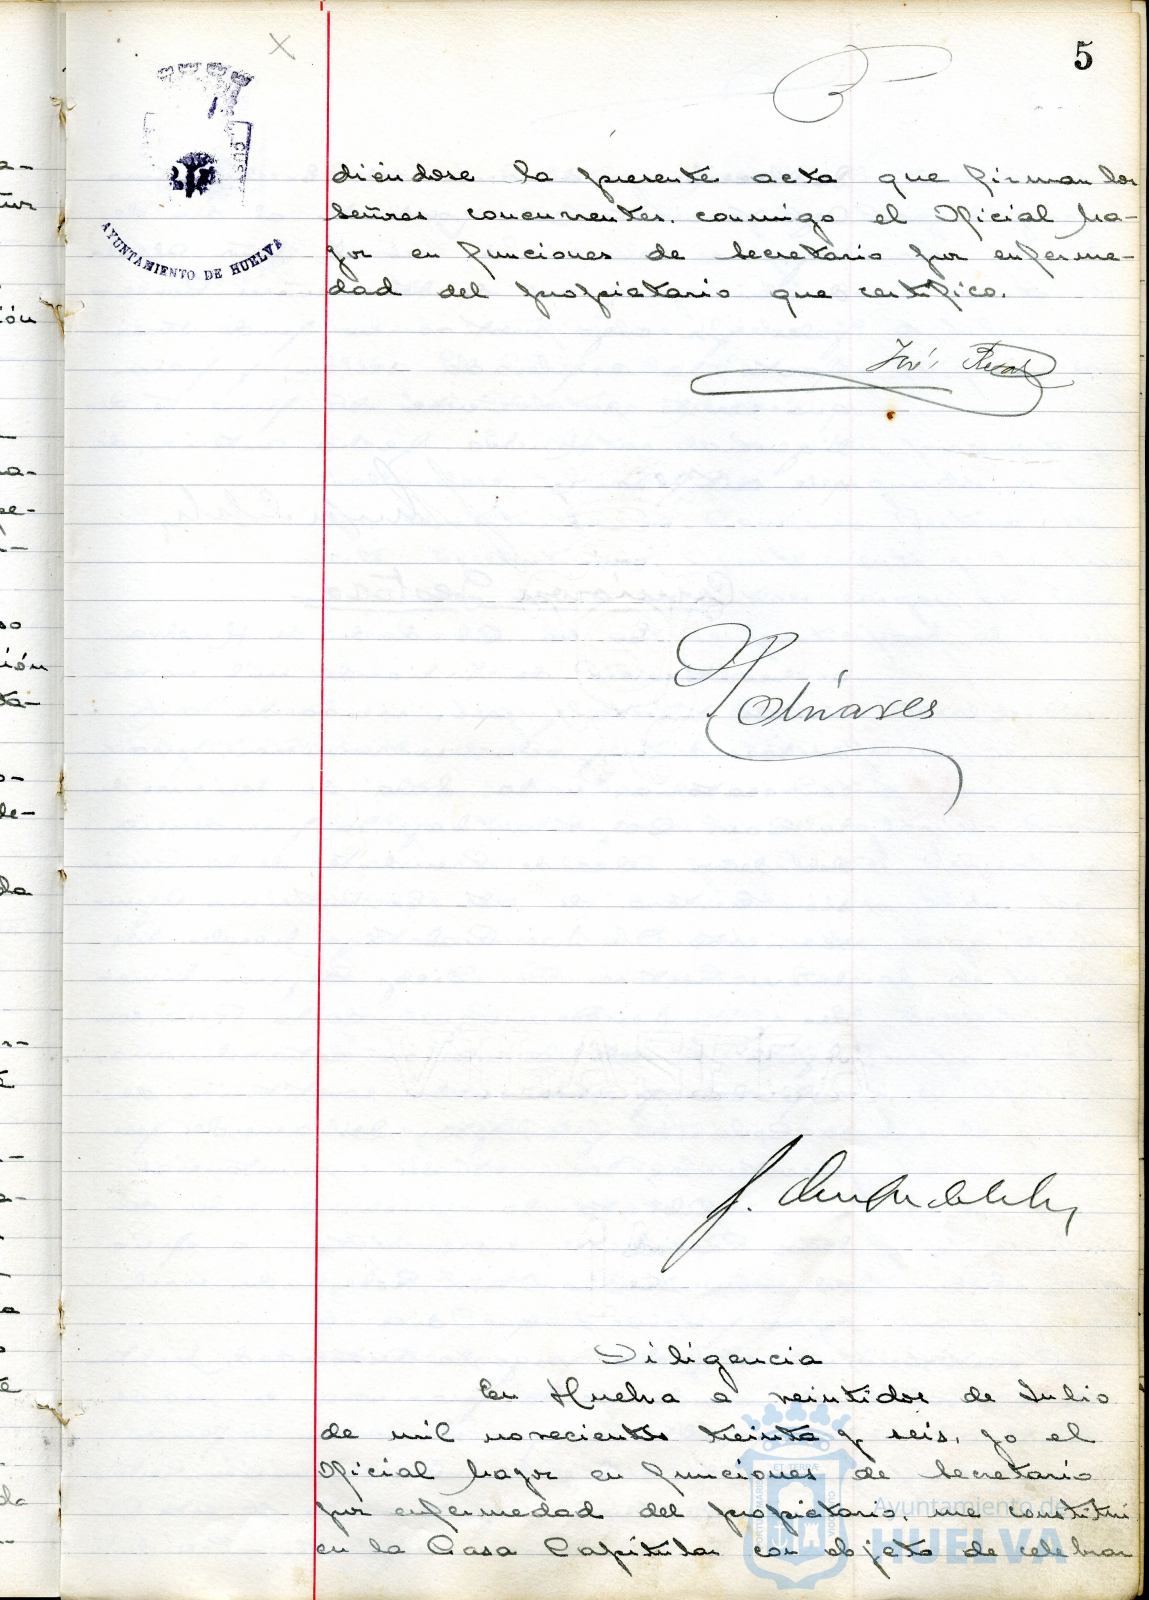 5
AYUNTAMIENTO DE HUELVA
diéndose la presente acta que firman los
señores concurrentes, conmigo el Oficial Ma-
yor en funciones de Secretario por enferme-
dad del propietario que certifico.
José
Diligencia
En Huelva a veintidos de Julio
de mil novecientos treinta y seis, yo el
Oficial Mayor en funciones de Secretario
por enfermedad del propietario, me constituí
en la Casa Capitular con objeto de celebrar
Ayuntamiento de
HUELVA